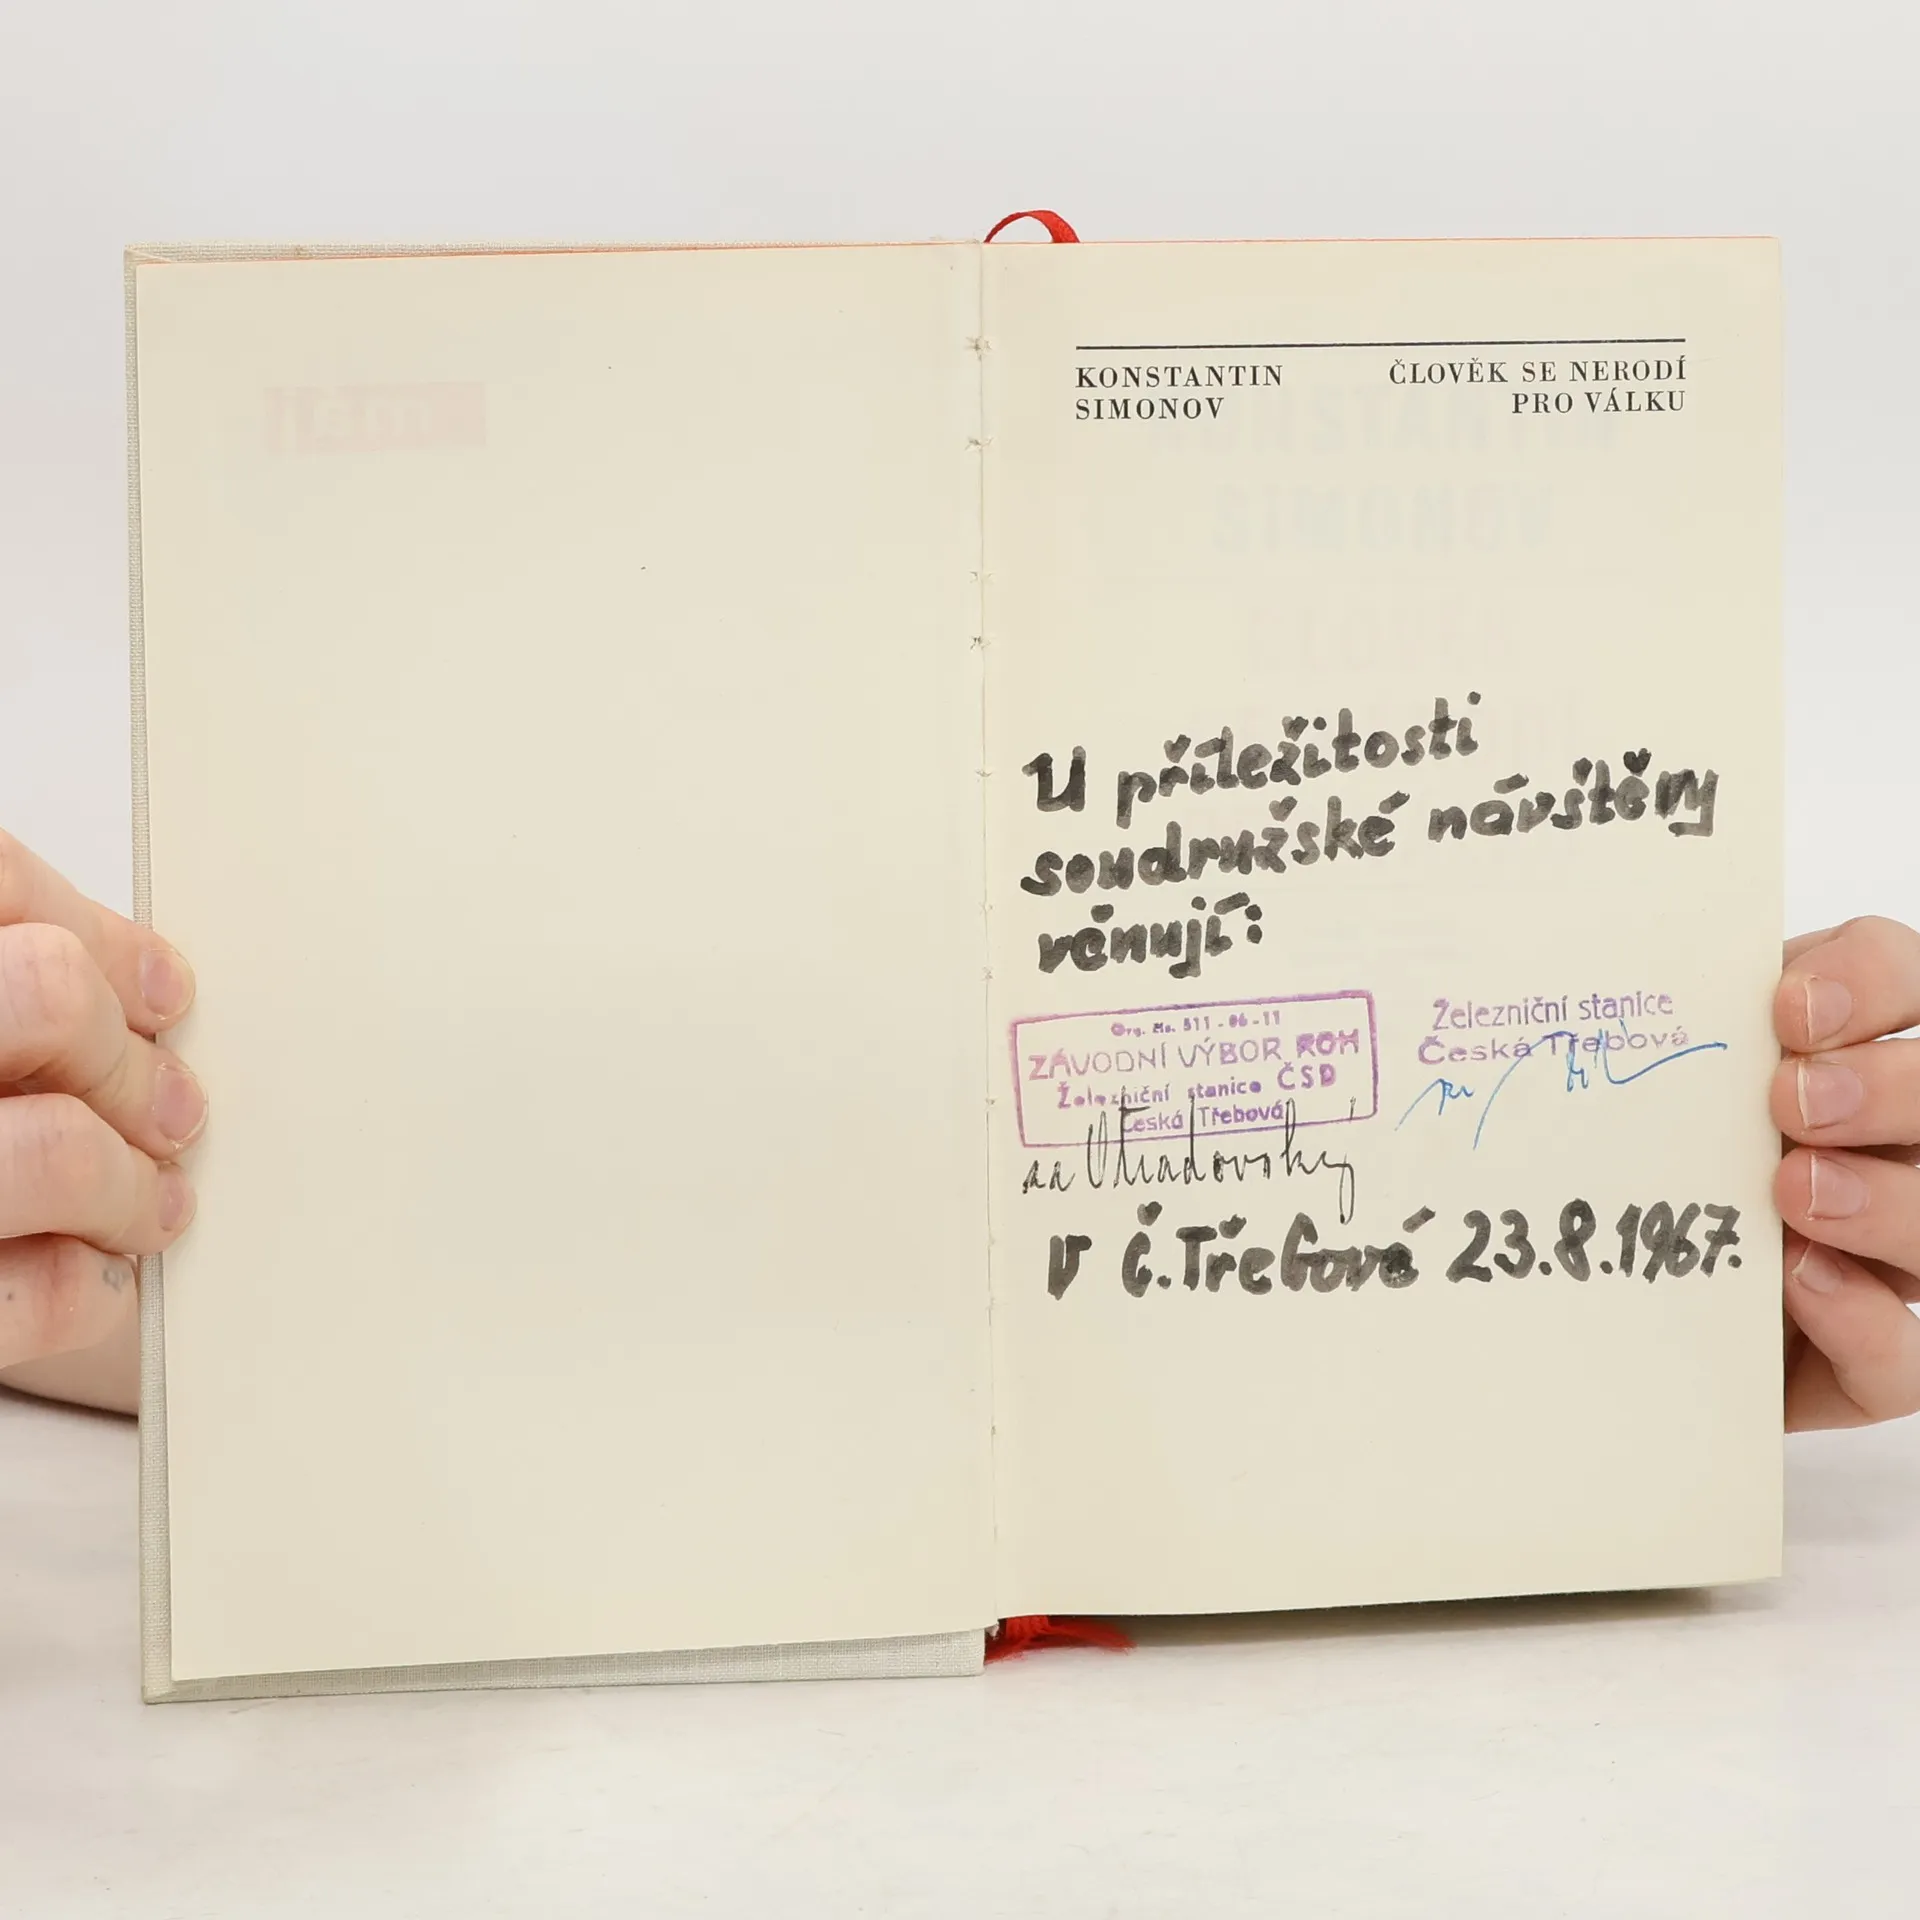 KONSTANTIN
SIMONOV
ČLOVĚK SE NERODÍ
PRO VÁLKU
U příležitosti
soudružské návštěvy
věnují:
Org. čís. 511-06-11
ZÁVODNÍ VÝBOR ROH
Železniční stanice ČSD
Česká Třebová
Železniční stanice
Česká Třebová
v Č. Třebové 23.8.1967.